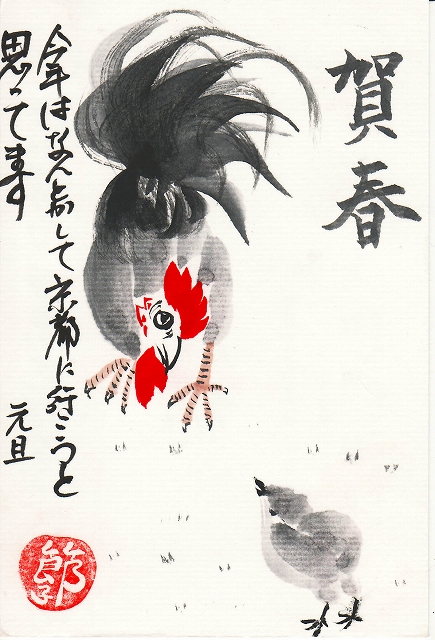 賀春
今年はなんとかして京都に行こうと
思ってます
元旦
節子